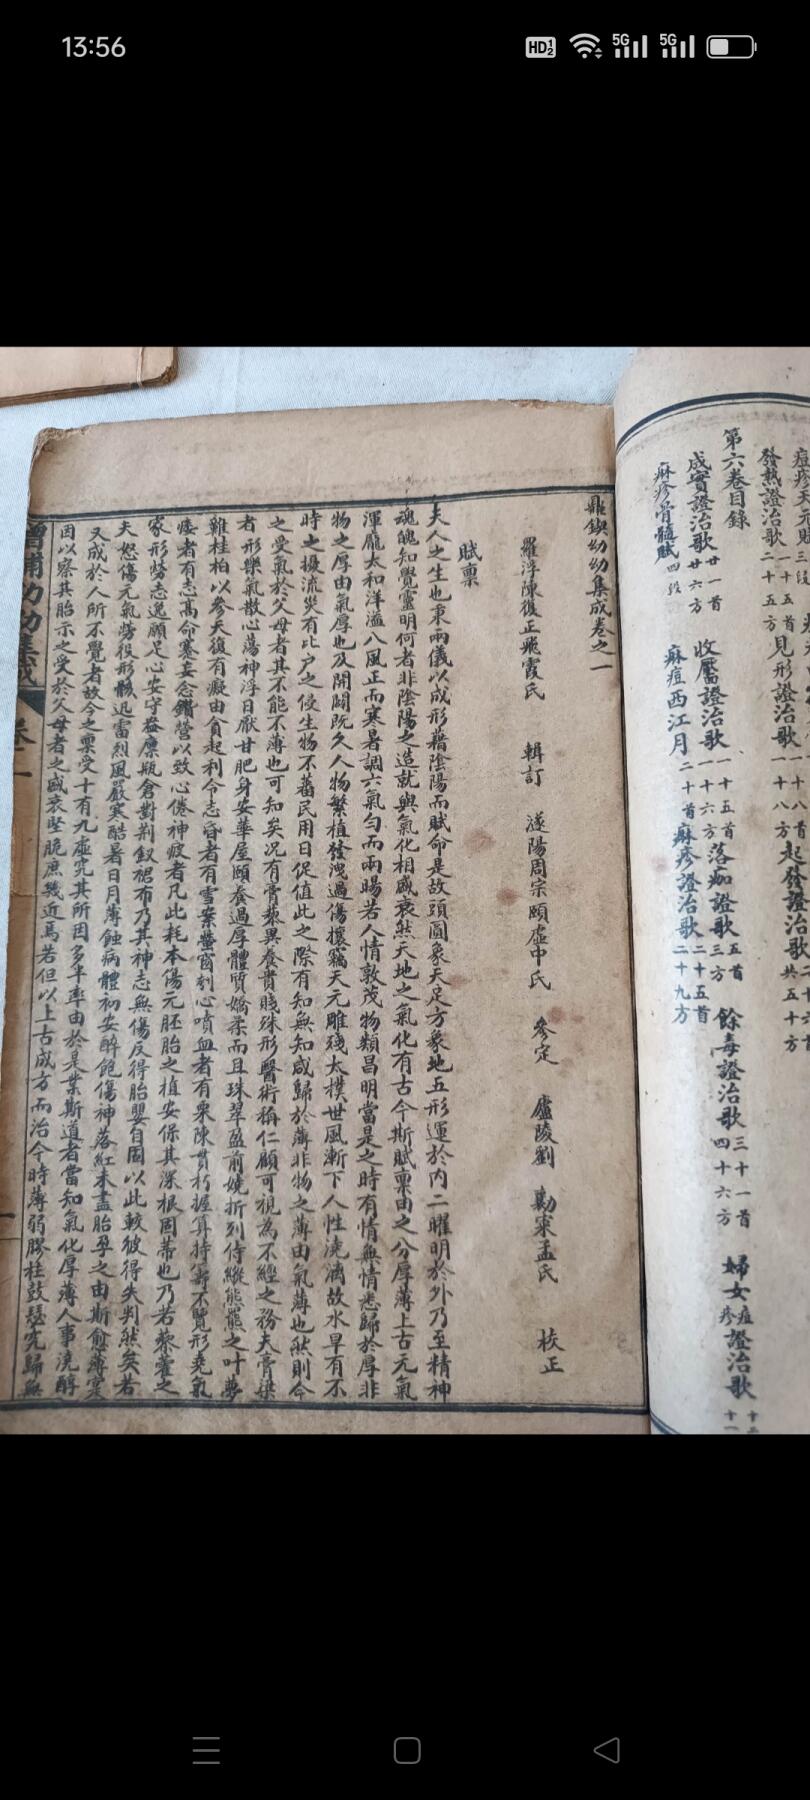 13:56
HD 1 2
5G
5G
發熱證治歌二十五首見形證治歌一十八首起發證治歌
第六卷目錄
成實證治歌廿一首廿六方 收靨證治歌一十五首一十六方 落痂證歌五首三方 餘毒證治歌三十一首四十六方 婦女痘疹證治歌
麻疹骨髓賦四段 麻痘西江月二十首 麻疹證治歌二十五首二十九方
鼎鍥幼幼集成卷之一
羅浮陳復正飛霞氏 輯訂 遂陽周宗頤虛中氏 參定 廬陵劉 勷寀孟氏 校正
賦稟
夫人之生也秉兩儀以成形藉陰陽而賦命是故頭圓象天足方象地五形運於內二曜明於外乃至精神
魂魄知覺靈明何者非陰陽之造就與氣化相感哀然天地之氣化有古今斯賦稟由之分厚薄上古元氣
渾龐太和洋溢八風正而寒暑調六氣勻而雨暘若人情敦茂物類昌明當是之時有情無情悉歸於厚非
物之厚由氣厚也及開闢既久人物繁植發洩過傷攘竊天元雕殘太樸世風漸下人性澆漓故水旱有不
時之擾流災有比戶之侵生物不蕃民用日促值此之際有知無知咸歸於薄非物之薄由氣薄也然則今
之受氣於父母者其不能不薄也可知矣況有膏藜異養貴賤殊形醫術稱仁顧可視為不經之務夫膏粱
者形樂氣散心蕩神浮日厭甘肥身安華屋頤養過厚體質嬌柔而且珠翠盈前嬈折列侍縱熊羆之叶夢
難桂柏以參天復有癡由貪起利令志昏者有雪案螢窗刻心噴血者有粟陳貫朽握算持籌不覺形羸氣
痿者有志高命蹇妄念鑽營以致心倦神疲者凡此耗本傷元胚胎之植安保其深根固蒂也乃若藜藿之
家形勞志逸願足心安守益廩瓶倉對荊釵裙布乃其神志無傷反得胎嬰自固以此較彼得失判然矣若
夫怒傷元氣勞役形骸迅雷烈風嚴寒酷暑日月薄蝕病體初安醉飽傷神落紅未盡胎孕之由斯愈薄寔
又成於人所不覺者故今之稟受十有九虛究其所因多半率由於是業斯道者當知氣化厚薄人事澆醇
因以察其胎示之受於父母者之盛衰堅脆庶幾近焉若但以上古成方而治今時薄弱膠柱鼓瑟究歸無
增補幼幼集成 卷一 一